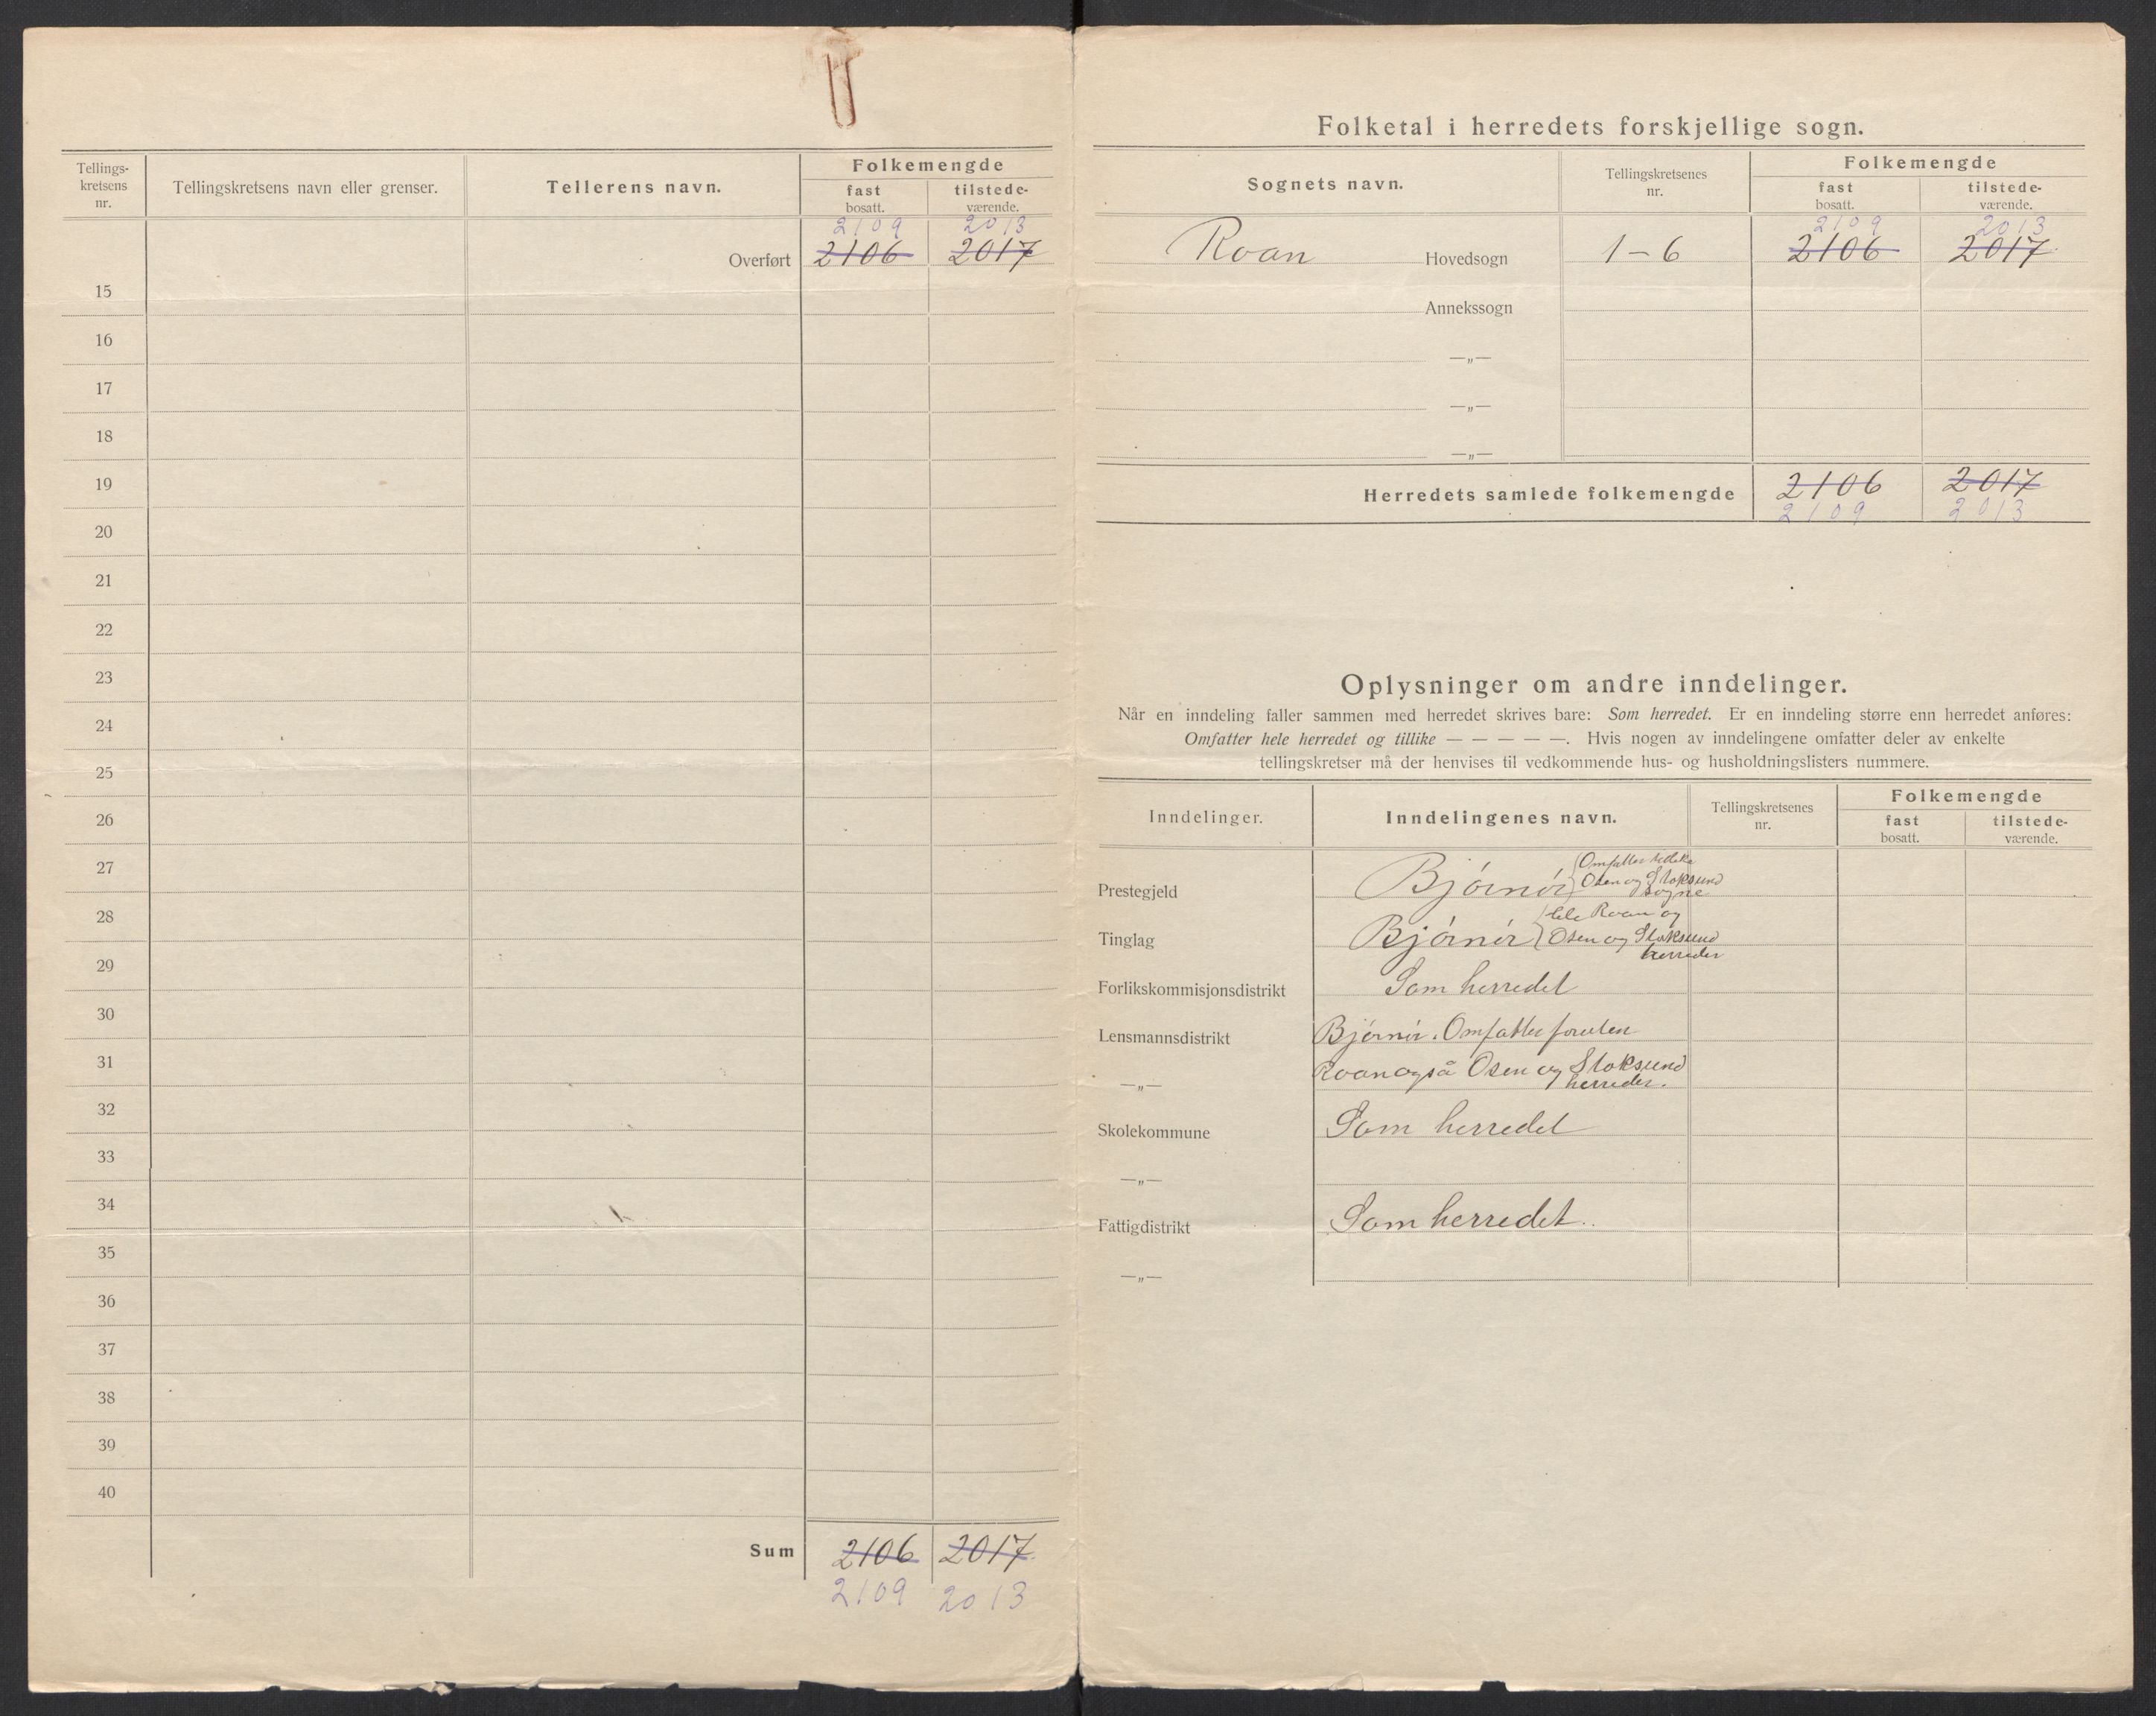 Tellings-
kretsens
nr.
Tellingskretsens navn eller grenser.
Tellerens navn.
Folkemengde
fast
bosatt.
tilstede-
værende.
2109 2013
Overført 2106 2017
15
16
17
18
19
20
21
22
23
24
25
26
27
28
29
30
31
32
33
34
35
36
37
38
39
40
Sum 2106 2017
2109 2013
Folketal i herredets forskjellige sogn.
Sognets navn.
Tellingskretsenes
nr.
Folkemengde
fast
bosatt.
tilstede-
værende.
2109 2013
Roan Hovedsogn 1-6 2106 2017
Annekssogn
—„—
—„—
—„—
Herredets samlede folkemengde 2106 2017
2109 2013
Oplysninger om andre inndelinger.
Når en inndeling faller sammen med herredet skrives bare: Som herredet. Er en inndeling større enn herredet anføres:
Omfatter hele herredet og tillike — — — — —. Hvis nogen av inndelingene omfatter deler av enkelte
tellingskretser må der henvises til vedkommende hus- og husholdningslisters nummere.
Inndelinger.
Inndelingenes navn.
Tellingskretsenes
nr.
Folkemengde
fast
bosatt.
tilstede-
værende.
Omfatter
Prestegjeld Bjórnór Osen og Stoksund
sogne
Roan og
Tinglag Bjórnór Osen og Stoksund
herreder
Forlikskommisjonsdistrikt Som herredet
Lensmannsdistrikt Bjórnór. Omfatter foruten
—„— Roan også Osen og Stoksund
herreder.
Skolekommune Som herredet
—„—
Fattigdistrikt Som herredet.
—„—